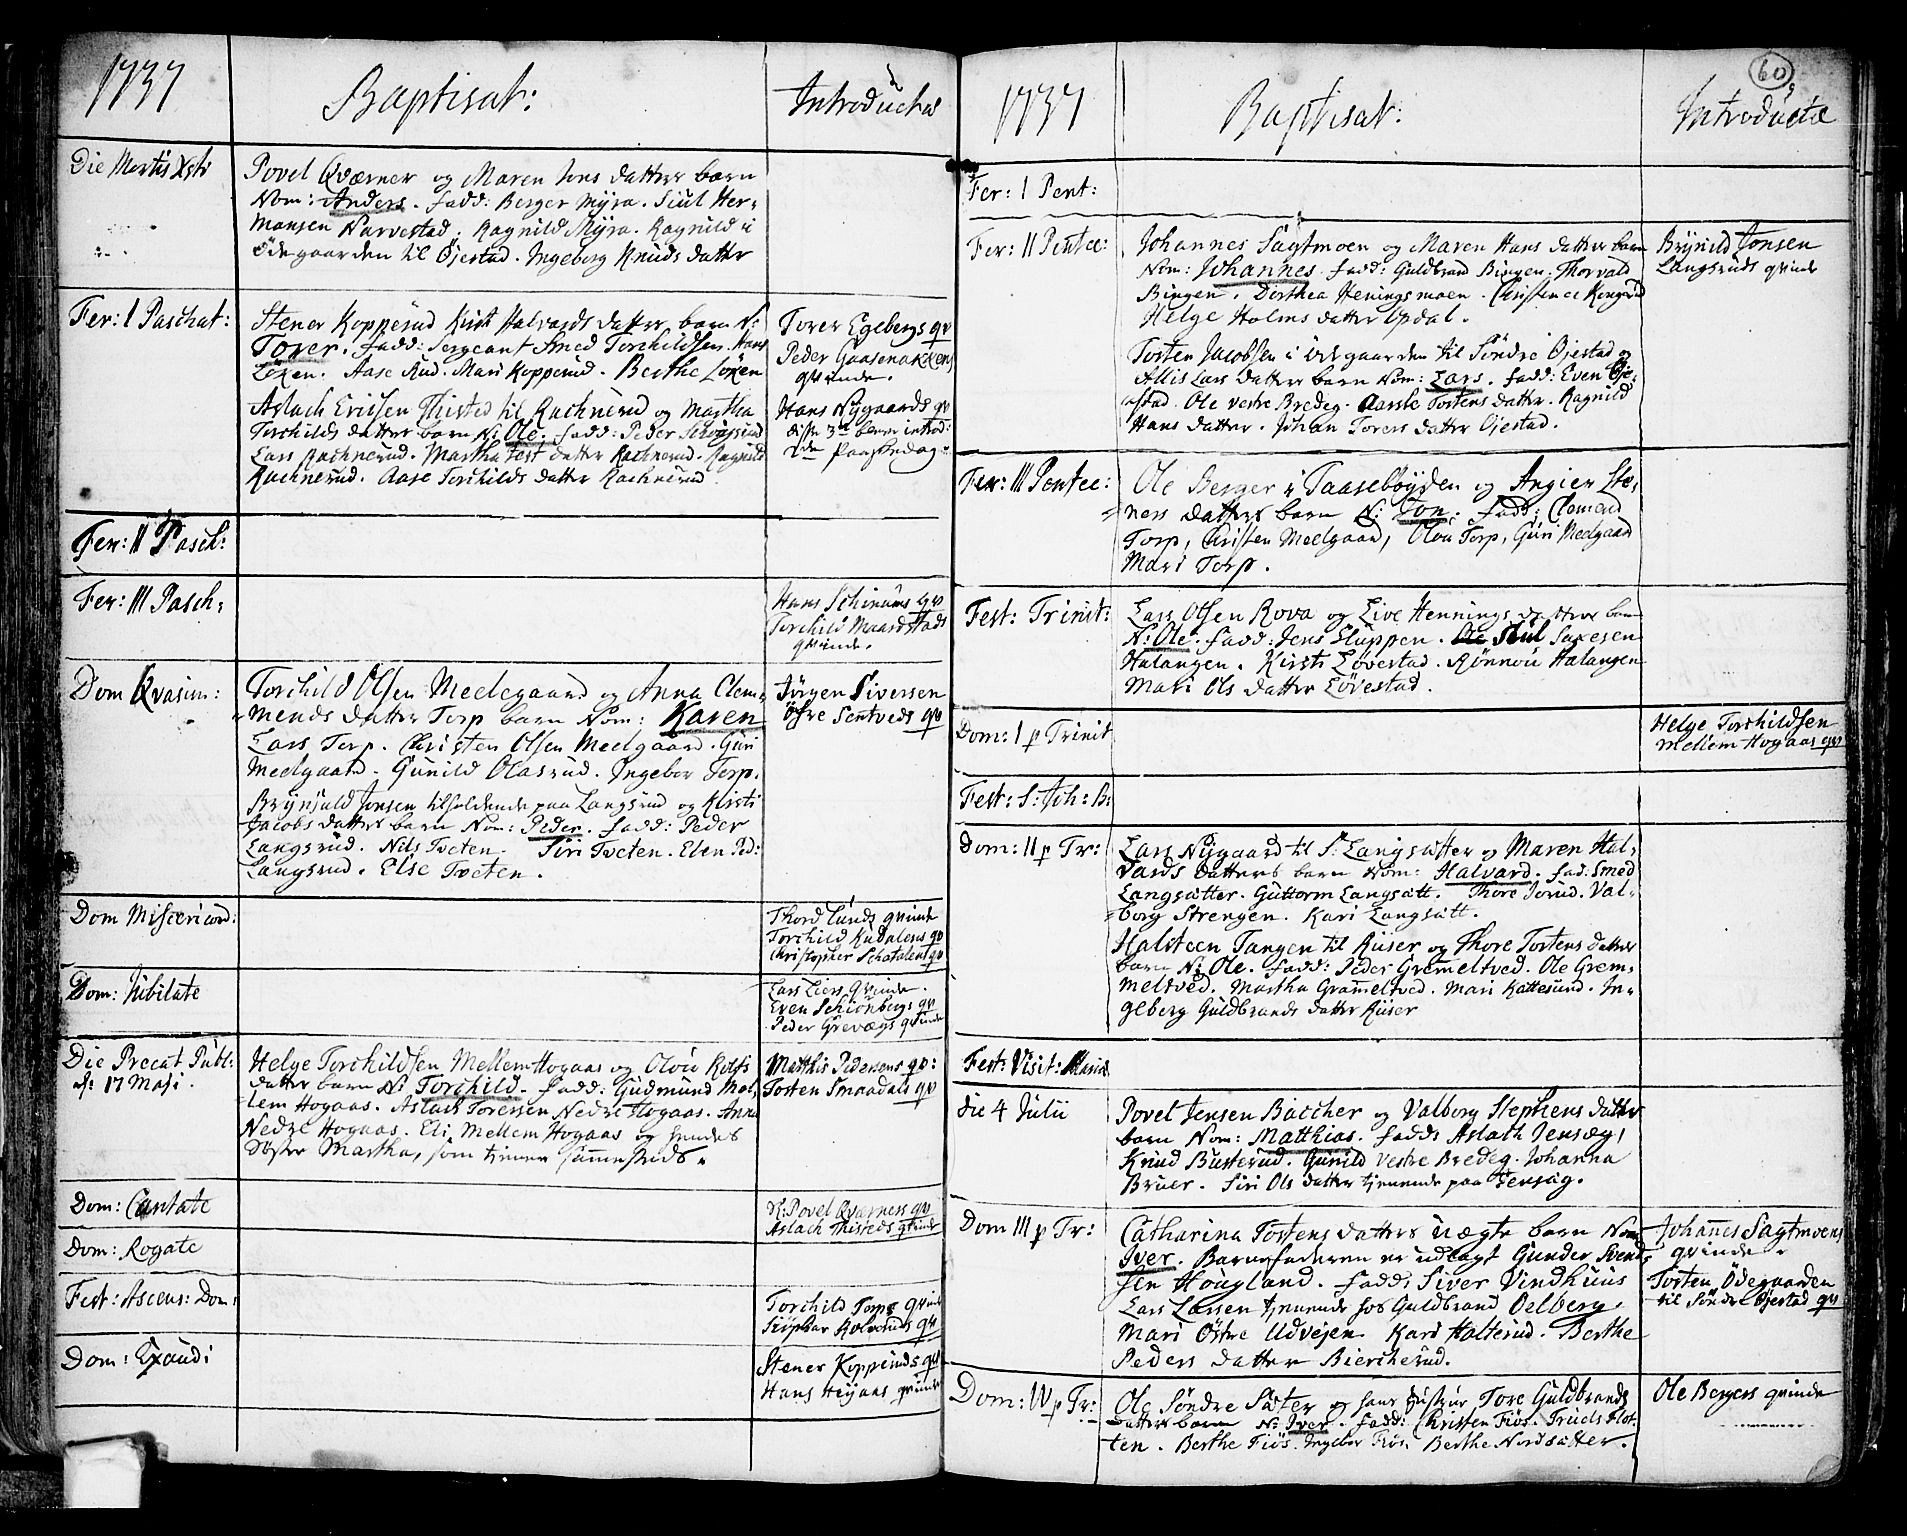 1737
Baptisat:
Introductæ
Die Mortis Xsti
Povel Qværner og Maren Jens datter barn
Nom: Anders. fadd: Berger Myra. Siul Her-
mansen Narvestad. Ragnild Myra. Ragnild i
Ödegaarden til Øjestad. Ingeborg Knuds datter
Fer: I Paschat:
Stener Kopperud Kirst Halvards datter barn N:
Torer. fadd: Sergeant Smed Torchildsen. Hans
Løken. Aase Rud. Mari Kopperud. Berthe Løken
Torer Egebergs qv
Peder Gaasenakkens
qvinde.
Aslach Erichsen Thisted til Rachnerud og Martha
Torchilds datter barn N: Ole. fadd: Peder
Lars Rachnerud. Martha Test datter Rachnerud. Ragnild
Rachnerud. Aase Torchilds datter Rachnerud
Hans Nygaards qv
disse 3de bleve introd:
2den Paaskedag
Fer: II Pasch:
Fer: III Pasch:
Hans Schinnes qv
Torchild Maardstads
qvinde.
Dom Qvasim:
Torchild Olsen Meelegaard og Anna Clem-
mends datter Torp barn Nom: Karen
Lars Torp. Christen Olsen Meelgaard. Guri
Meelgaard. Gunild Olasrud. Ingebor Torp.
Jörgen Siversen
Østre Sentveds qv
Brynjuld Jonsen tilholdende paa Langsrud og Kirsti
Jacobs datter barn Nom: Peder. fadd: Peder
Langsrud. Nils Tveten. Siri Tveten. Elen Ped:
Langsrud. Else Tveten.
Dom Misericord:
Thord Lunds qvinde
Torchild Kudalens qv
Christopher Schatalens qv
Dom: Jubilate
Lars Liers qvinde.
Even Schiönbergs qv
Peder Grevægs qvinde
Die Precat. Publ:
d: 17 Maji.
Helge Torchildsen Mellem Hogaas og Olöu Rolfs
datter barn N: Torchild. fadd: Gudmund Mel-
lem Hogaas. Aslach Torersen Nedre Hogaas. Anna
Nedre Hogaas. Eli Mellem Hogaas og hendes
Søster Martha, som tiener sammesteds.
Matthis Pedersens qv:
Tosten Smaadals qv
Dom: Cantate
N: Povel Qværners qv
Aslach Thisteds qvinde
Dom: Rogate
Fest: Ascens: Dom:
Torchild Torps qvinde
Dom: Exaudi
Stener Kopperuds qv
Hans Heyaas qvinde
60
1737
Baptisat:
Introductæ
Fer: I Pent:
Fer: II Pentec:
Johannes Sagtmoen og Maren Hans datter barn
Nom: Johannes. fadd: Guldbrand Bingen. Thorvald
Bingen. Dorthea Heningsmoen. Christence Kongerud
Helge Holms datter Updal.
Brynild Jonsen
Langsruds qvinde
Tosten Jacobsen i Ödegaarden til Söndre Øjestad og
Allis Lars datter barn Nom: Lars. fadd: Even Øje-
stad. Ole vestre Bredeg. Aarste Tostens datter. Ragnild
Hans datter. Johan Torers datter Øjestad.
Fer: III Pentec:
Ole Berger i Taaseböyden og Angier Ste-
ners datters barn N: Jon. fadd: Clemend
Torp, Christen Meelgaard, Olöu Torp, Guri Meelgaard
Mari Torp.
Fest: Trinit:
Lars Olsen Rova og Live Hennings datter barn
N: Ole. fadd: Jens Sluppen. Siul Saxesen
Halangen. Kirsti Løvestad. Rönnou Halangen
Mari Ols datter Løvestad.
Dom: I p Trinit
Helge Torchildsen
Mellem Hogaas qv
Fest: S: Joh: B:
Dom: II p Tr:
Lars Nygaard til S: Langsætter og Maren Hal-
vards datters barn Nom: Halvard. fad: Smed
Langsætter. Guttorm Langsætt. Thore Jorud. Val-
borg Strengen. Kari Langsætt.
Halsteen Tangen til Riiser og Thore Tostens datter
barn N: Ole. fadd: Peder Gremeltved. Ole Grem-
meltved. Martha Grameltved. Mari Kattesund. In-
geborg Guldbrands datter Riiser
Fest: Visit: Mariæ
die 4 Julii
Povel Jensen Baccher og Valborg Stephens datter
barn Nom: Matthias. fadd: Aslach Jensæg,
Knud Busterud. Gunild vestre Bredeg. Johanna
Bruer. Siri Ols datter tjenende paa Jensæg.
Dom III p Tr:
Catharina Tostens datters uægte barn Nom:
Iver. Barnefaderen er udlagt Gunder Svend-
sen Hougland. fadd: Siver Vindhuus
Lars Larsen tjenende hos Guldbrand Oelberg.
Mari Østre Udvejen. Kari Halterud. Berthe
Peders datter Biercherud.
Johannes Sagtmoens
qvinde.
Tosten Ødegaarden
til Söndre Øjestad qv
Dom: IV p Tr:
Ole Söndre Säter og hans Hustrue Tore Guldbrands
datters barn N: Iver. fadd: Christen Fiös. Truels Flot-
ten. Berthe Fiös. Ingebor Fiös. Berthe Nordsætter.
Ole Bergers qvinde